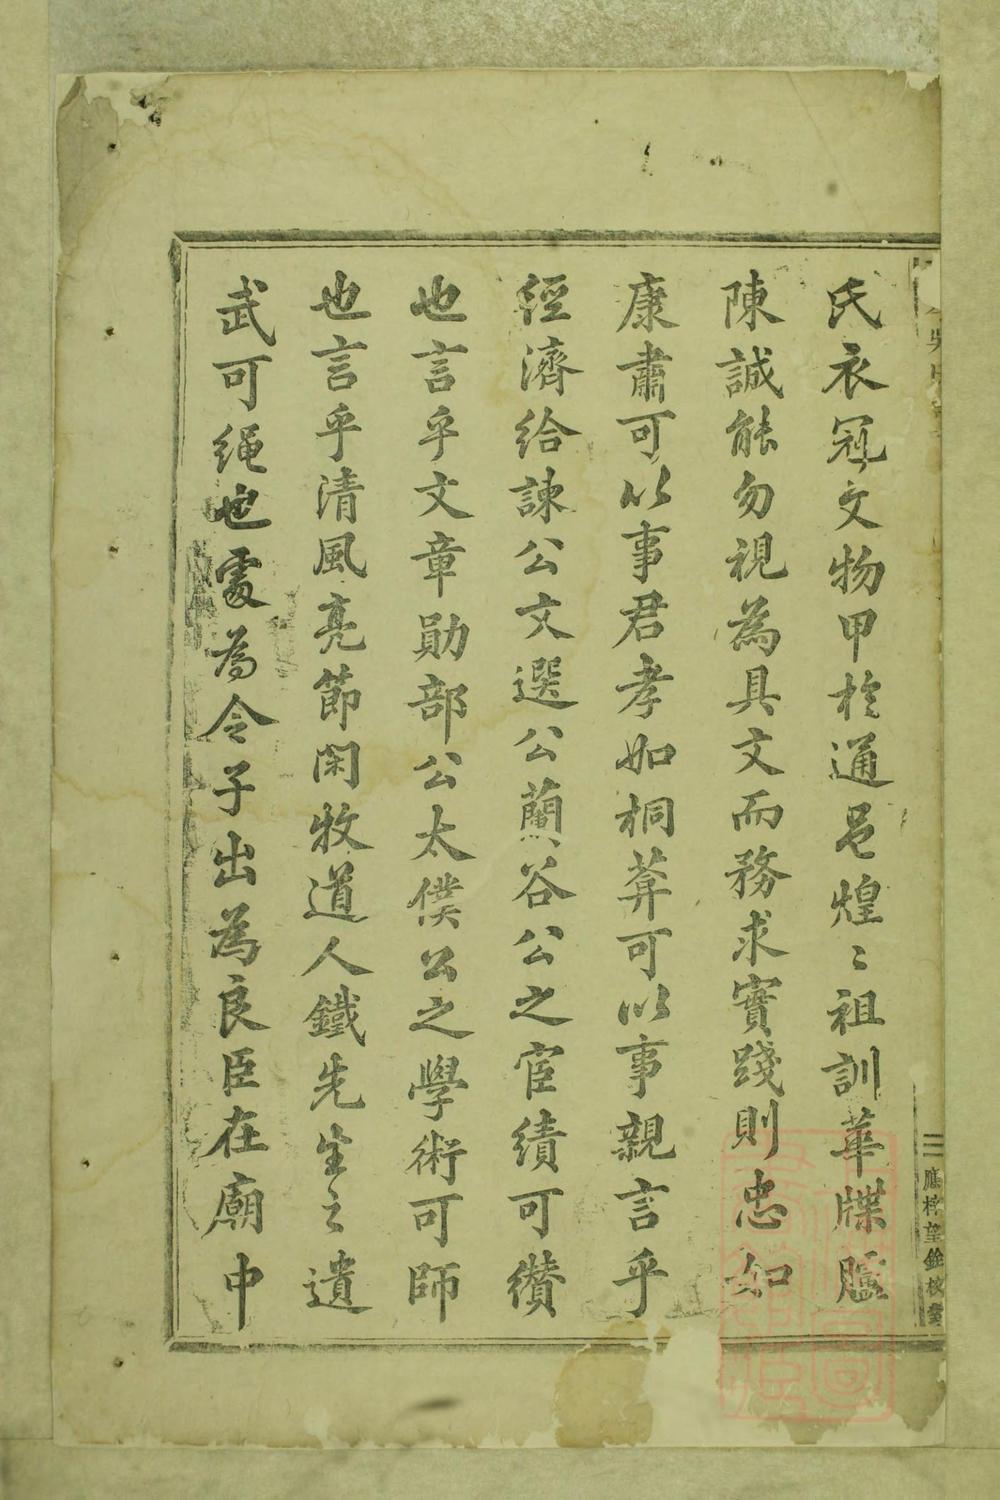 氏衣冠文物甲於通邑煌〻祖訓華牒臚
陳誠能勿視為具文而務求實踐則忠如
康肅可以事君孝如桐葬可以事親言乎
經濟給諫公文選公蘭谷公之宦績可纘
也言乎文章勛部公太僕公之學術可師
也言乎清風亮節閑牧道人鐵先生之遺
武可绳也處為令子出為良臣在廟中